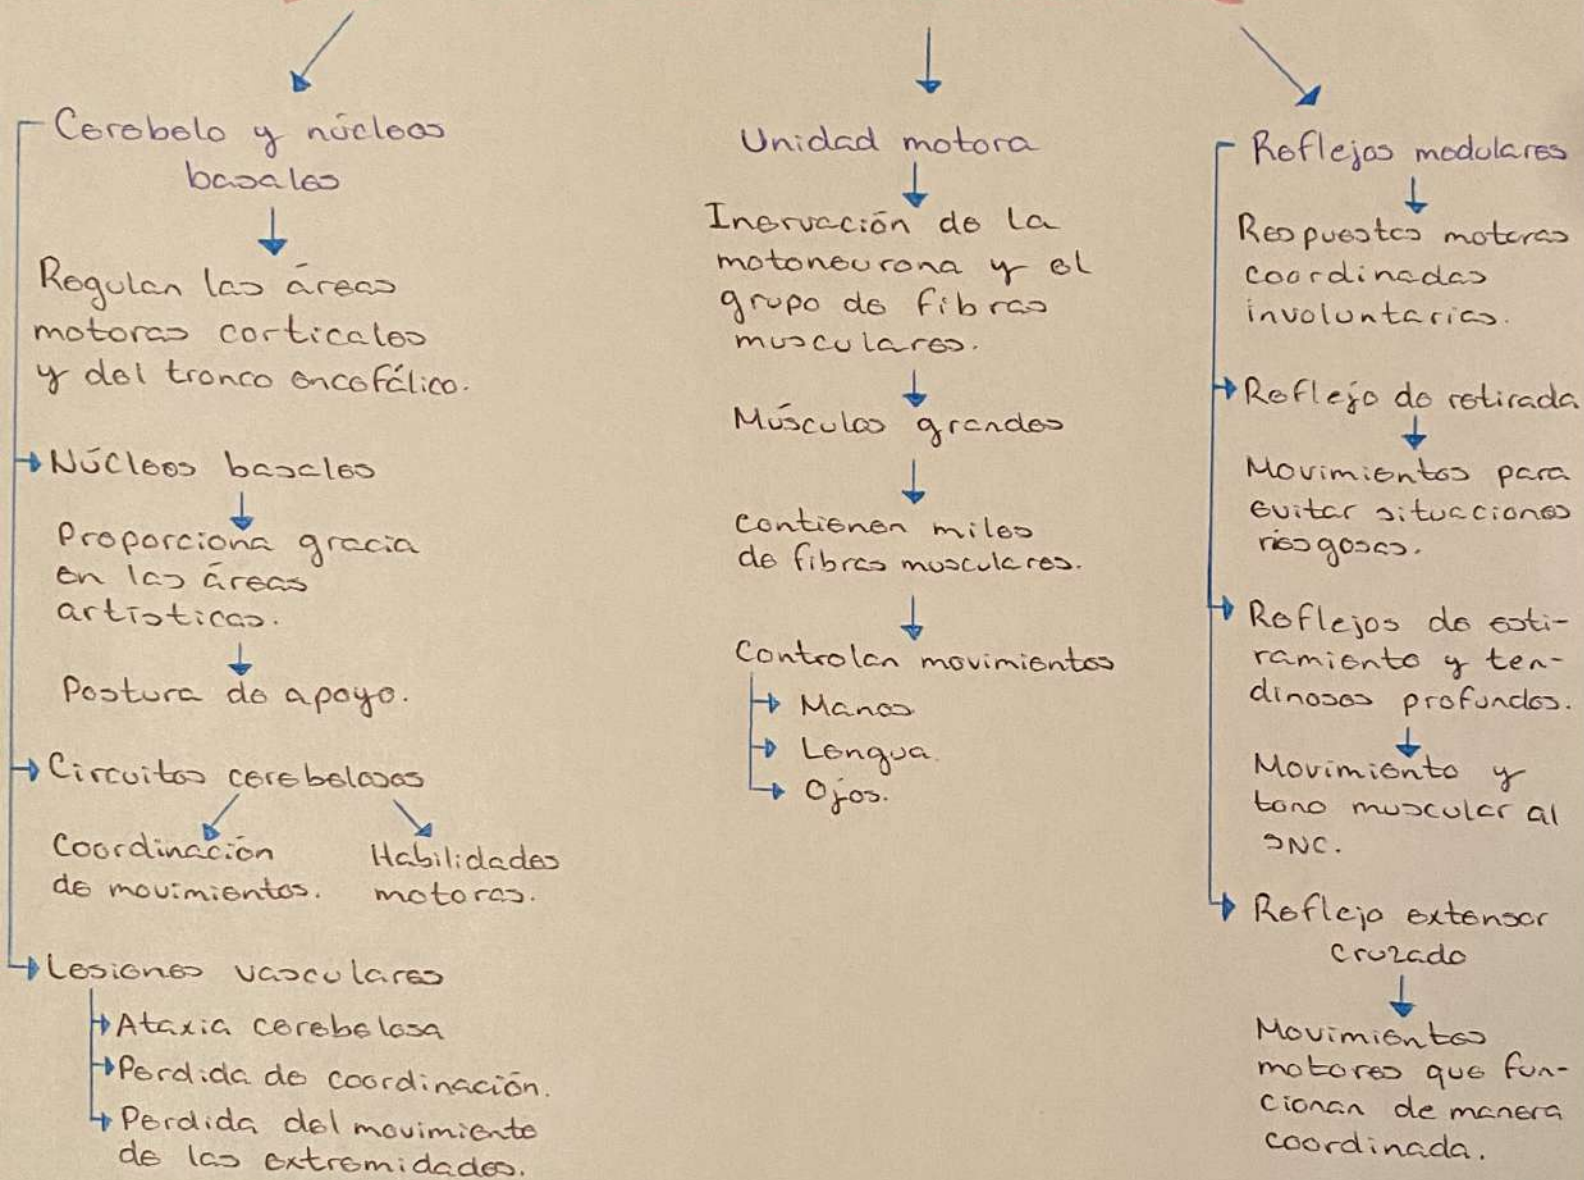 Cerebelo y núcleos
basales
Regulan las áreas
motoras corticales
y del tronco encefálico.
Núcleos basales
Proporciona gracia
en las áreas
artísticas.
Postura de apoyo.
Circuitos cerebelosos
Coordinación
de movimientos.
Habilidades
motoras.
Lesiones vasculares
Ataxia cerebelosa
Perdida de coordinación.
Perdida del movimiento
de las extremidades.
Unidad motora
Inervación de la
motoneurona y el
grupo de fibras
musculares.
Músculos grandes
contienen miles
de fibras musculares.
Controlan movimientos
Manos
Lengua.
Ojos.
Reflejos medulares
Respuestas motoras
coordinadas
involuntarias.
Reflejo de retirada
Movimientos para
evitar situaciones
riesgosas.
Reflejos de esti-
ramiento y ten-
dinosos profundos.
Movimiento y
tono muscular al
SNC.
Reflejo extensor
cruzado
Movimientos
motores que fun-
cionan de manera
coordinada.